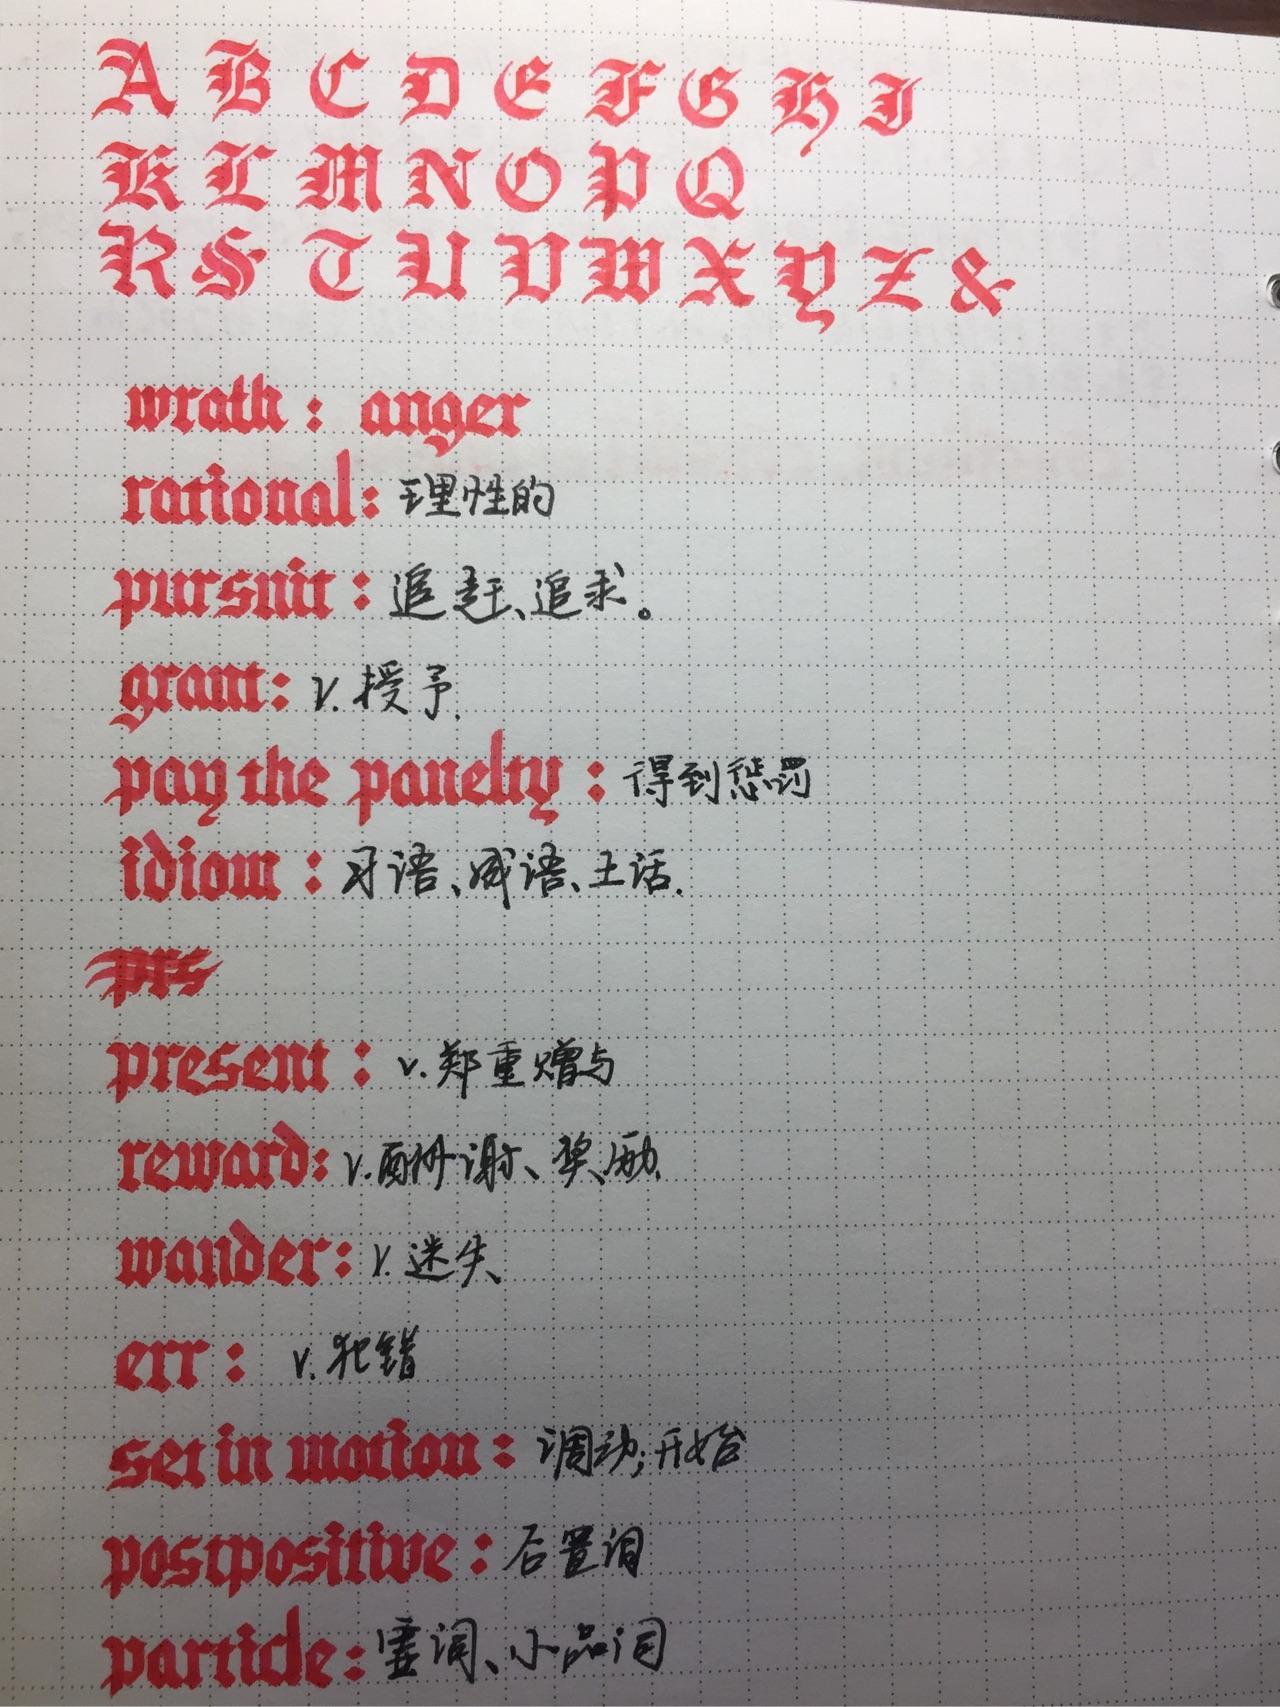 A B C D E F G H I
K L M N O P Q
R S T U V W X Y Z &
wrath : anger
rational : 理性的
pursuit : 追赶、追求。
grant : v. 授予.
pay the panelty : 得到惩罚
idiom : 习语、成语、土话.
prs
present : v. 郑重赠与
reward : v. 酬谢、奖励.
wander : v. 迷失、
err : v. 犯错
set in motion : 调动;开始
postpositive : 后置词
particle : 虚词、小品词